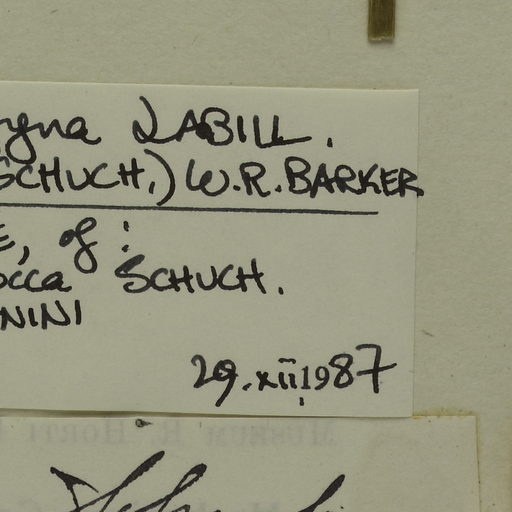 ngna LABILL.
SCHUCH.) W.R.BARKER
E, of:
occa SCHUCH.
NINI
29.xii.1987